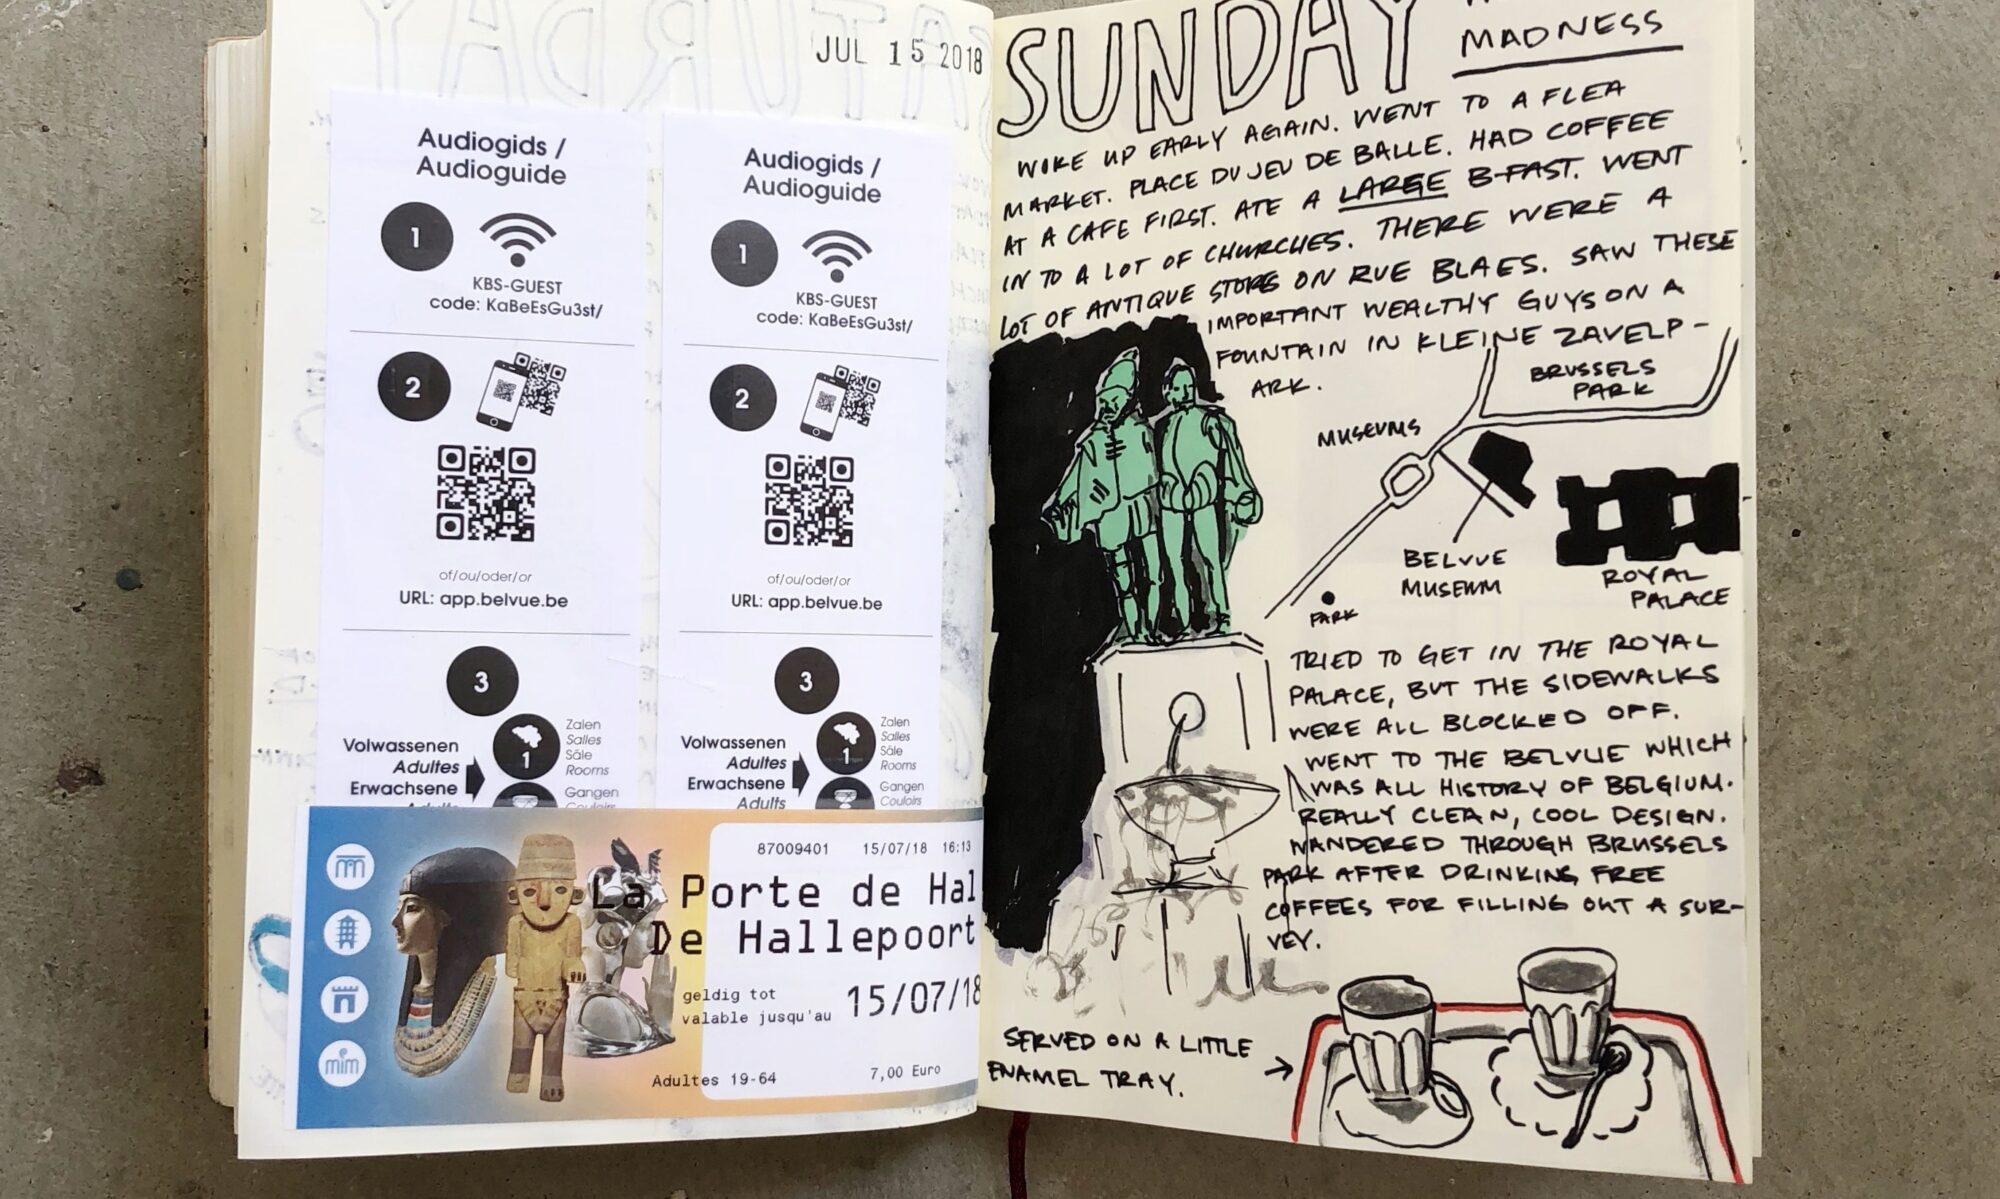 JUL 15 2018
Audiogids /
Audioguide
1
KBS-GUEST
code: KaBeEsGu3st/
2
of/ou/oder/or
URL: app.belvue.be
3
Volwassenen
Adultes
Erwachsene
Adults
1
Zalen
Salles
Säle
Rooms
Gangen
Couloirs
Audiogids /
Audioguide
1
KBS-GUEST
code: KaBeEsGu3st/
2
of/ou/oder/or
URL: app.belvue.be
3
Volwassenen
Adultes
Erwachsene
Adults
1
Zalen
Salles
Säle
Rooms
Gangen
Couloirs
87009401 15/07/18 16:13
La Porte de Hal
De Hallepoort
geldig tot
valable jusqu'au 15/07/18
Adultes 19-64 7,00 Euro
mim
SUNDAY
MADNESS
WOKE UP EARLY AGAIN. WENT TO A FLEA
MARKET. PLACE DU JEU DE BALLE. HAD COFFEE
AT A CAFE FIRST. ATE A LARGE B-FAST. WENT
IN TO A LOT OF CHURCHES. THERE WERE A
LOT OF ANTIQUE STORES ON RUE BLAES. SAW THESE
IMPORTANT WEALTHY GUYS ON A
FOUNTAIN IN KLEINE ZAVELP-
ARK.
BRUSSELS
PARK
MUSEUMS
BELVUE
MUSEUM
ROYAL
PALACE
PARK
TRIED TO GET IN THE ROYAL
PALACE, BUT THE SIDEWALKS
WERE ALL BLOCKED OFF.
WENT TO THE BELVUE WHICH
WAS ALL HISTORY OF BELGIUM.
REALLY CLEAN, COOL DESIGN.
WANDERED THROUGH BRUSSELS
PARK AFTER DRINKING FREE
COFFEES FOR FILLING OUT A SUR-
VEY.
SERVED ON A LITTLE
ENAMEL TRAY.